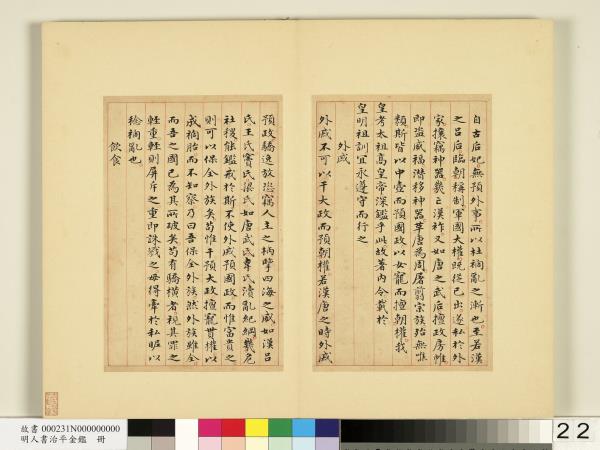 自古后妃無預外事所以杜禍亂之漸也至若漢
之呂后臨朝稱制軍國大權既從己出遂私於外
家攘竊神器幾亡漢祚又如唐之武后擅政房帷
即盜威福潛移神器革唐為周屠翦宗族殆無噍
類斯皆以中壼而預國政以女寵而擅朝權我
皇考太祖高皇帝深鑑乎此故著內令載於
皇明祖訓宜永遵守而行之
外戚
外戚不可以干大政而預朝權若漢唐之時外戚
預政驕逸放恣竊人主之柄擎四海之威如漢呂
氏王氏竇氏梁氏如唐武氏韋氏瀆亂紀綱幾危
社稷能鑑戒於斯不使外戚預國政而惟富貴之
則可以保全外族矣苟惟干預大政擅寵貫權以
成禍胎而不知察乃曰吾保全外族然外族雖全
而吾之國已為其所破矣苟有驕橫者視其罪之
輕重輕則屏斥之重即誅戮之毋得牽於私昵以
稔禍亂也
飲食
故書 000231N000000000
明人書治平金鑑 冊
22